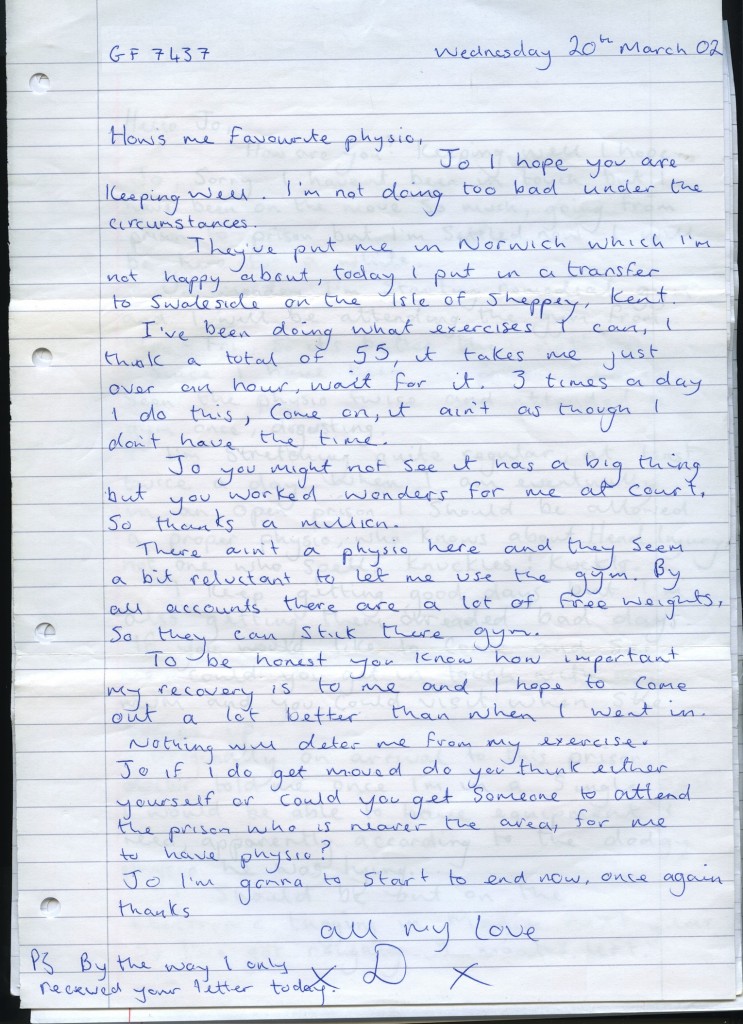 GF 7437
Wednesday 20th March 02
Hows me favourite physio,
Jo I hope you are
Keeping well. I'm not doing too bad under the
circumstances.
They've put me in Norwich which I'm
not happy about, today I put in a transfer
to Swaleside on the Isle of Sheppey, Kent.
I've been doing what exercises I can, I
think a total of 55, it takes me just
over an hour, wait for it. 3 times a day
I do this, Come on, it ain't as though I
don't have the time.
Jo you might not see it has a big thing
but you worked wonders for me at court,
So thanks a million.
There ain't a physio here and they seem
a bit reluctant to let me use the gym. By
all accounts there are a lot of free weights,
So they can stick there gym.
To be honest you know how important
my recovery is to me and I hope to come
out a lot better than when I went in.
Nothing will deter me from my exercise.
Jo if I do get moved do you think either
yourself or could you get someone to attend
the prison who is nearer the area, for me
to have physio?
Jo I'm gonna to start to end now, once again
thanks
all my love
x D x
PS By the way I only
received your letter today.